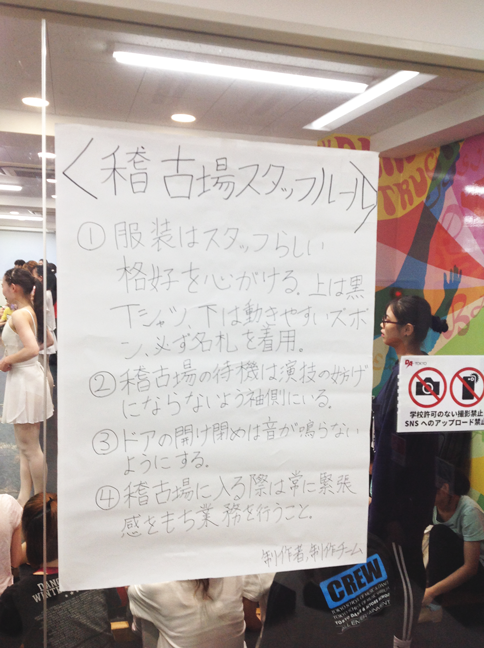 <稽古場スタッフルール>
①服装はスタッフらしい
格好を心がける。上は黒
Tシャツ、下は動きやすいズボ
ン、必ず名札を着用。
②稽古場の待機は演技の妨げ
にならないよう袖側にいる。
③ドアの開け閉めは音が鳴らない
ようにする。
④稽古場に入る際は常に緊張
感をもち業務を行うこと。
制作者,制作チーム
学校許可のない撮影禁止
SNSへのアップロード禁止
CREW